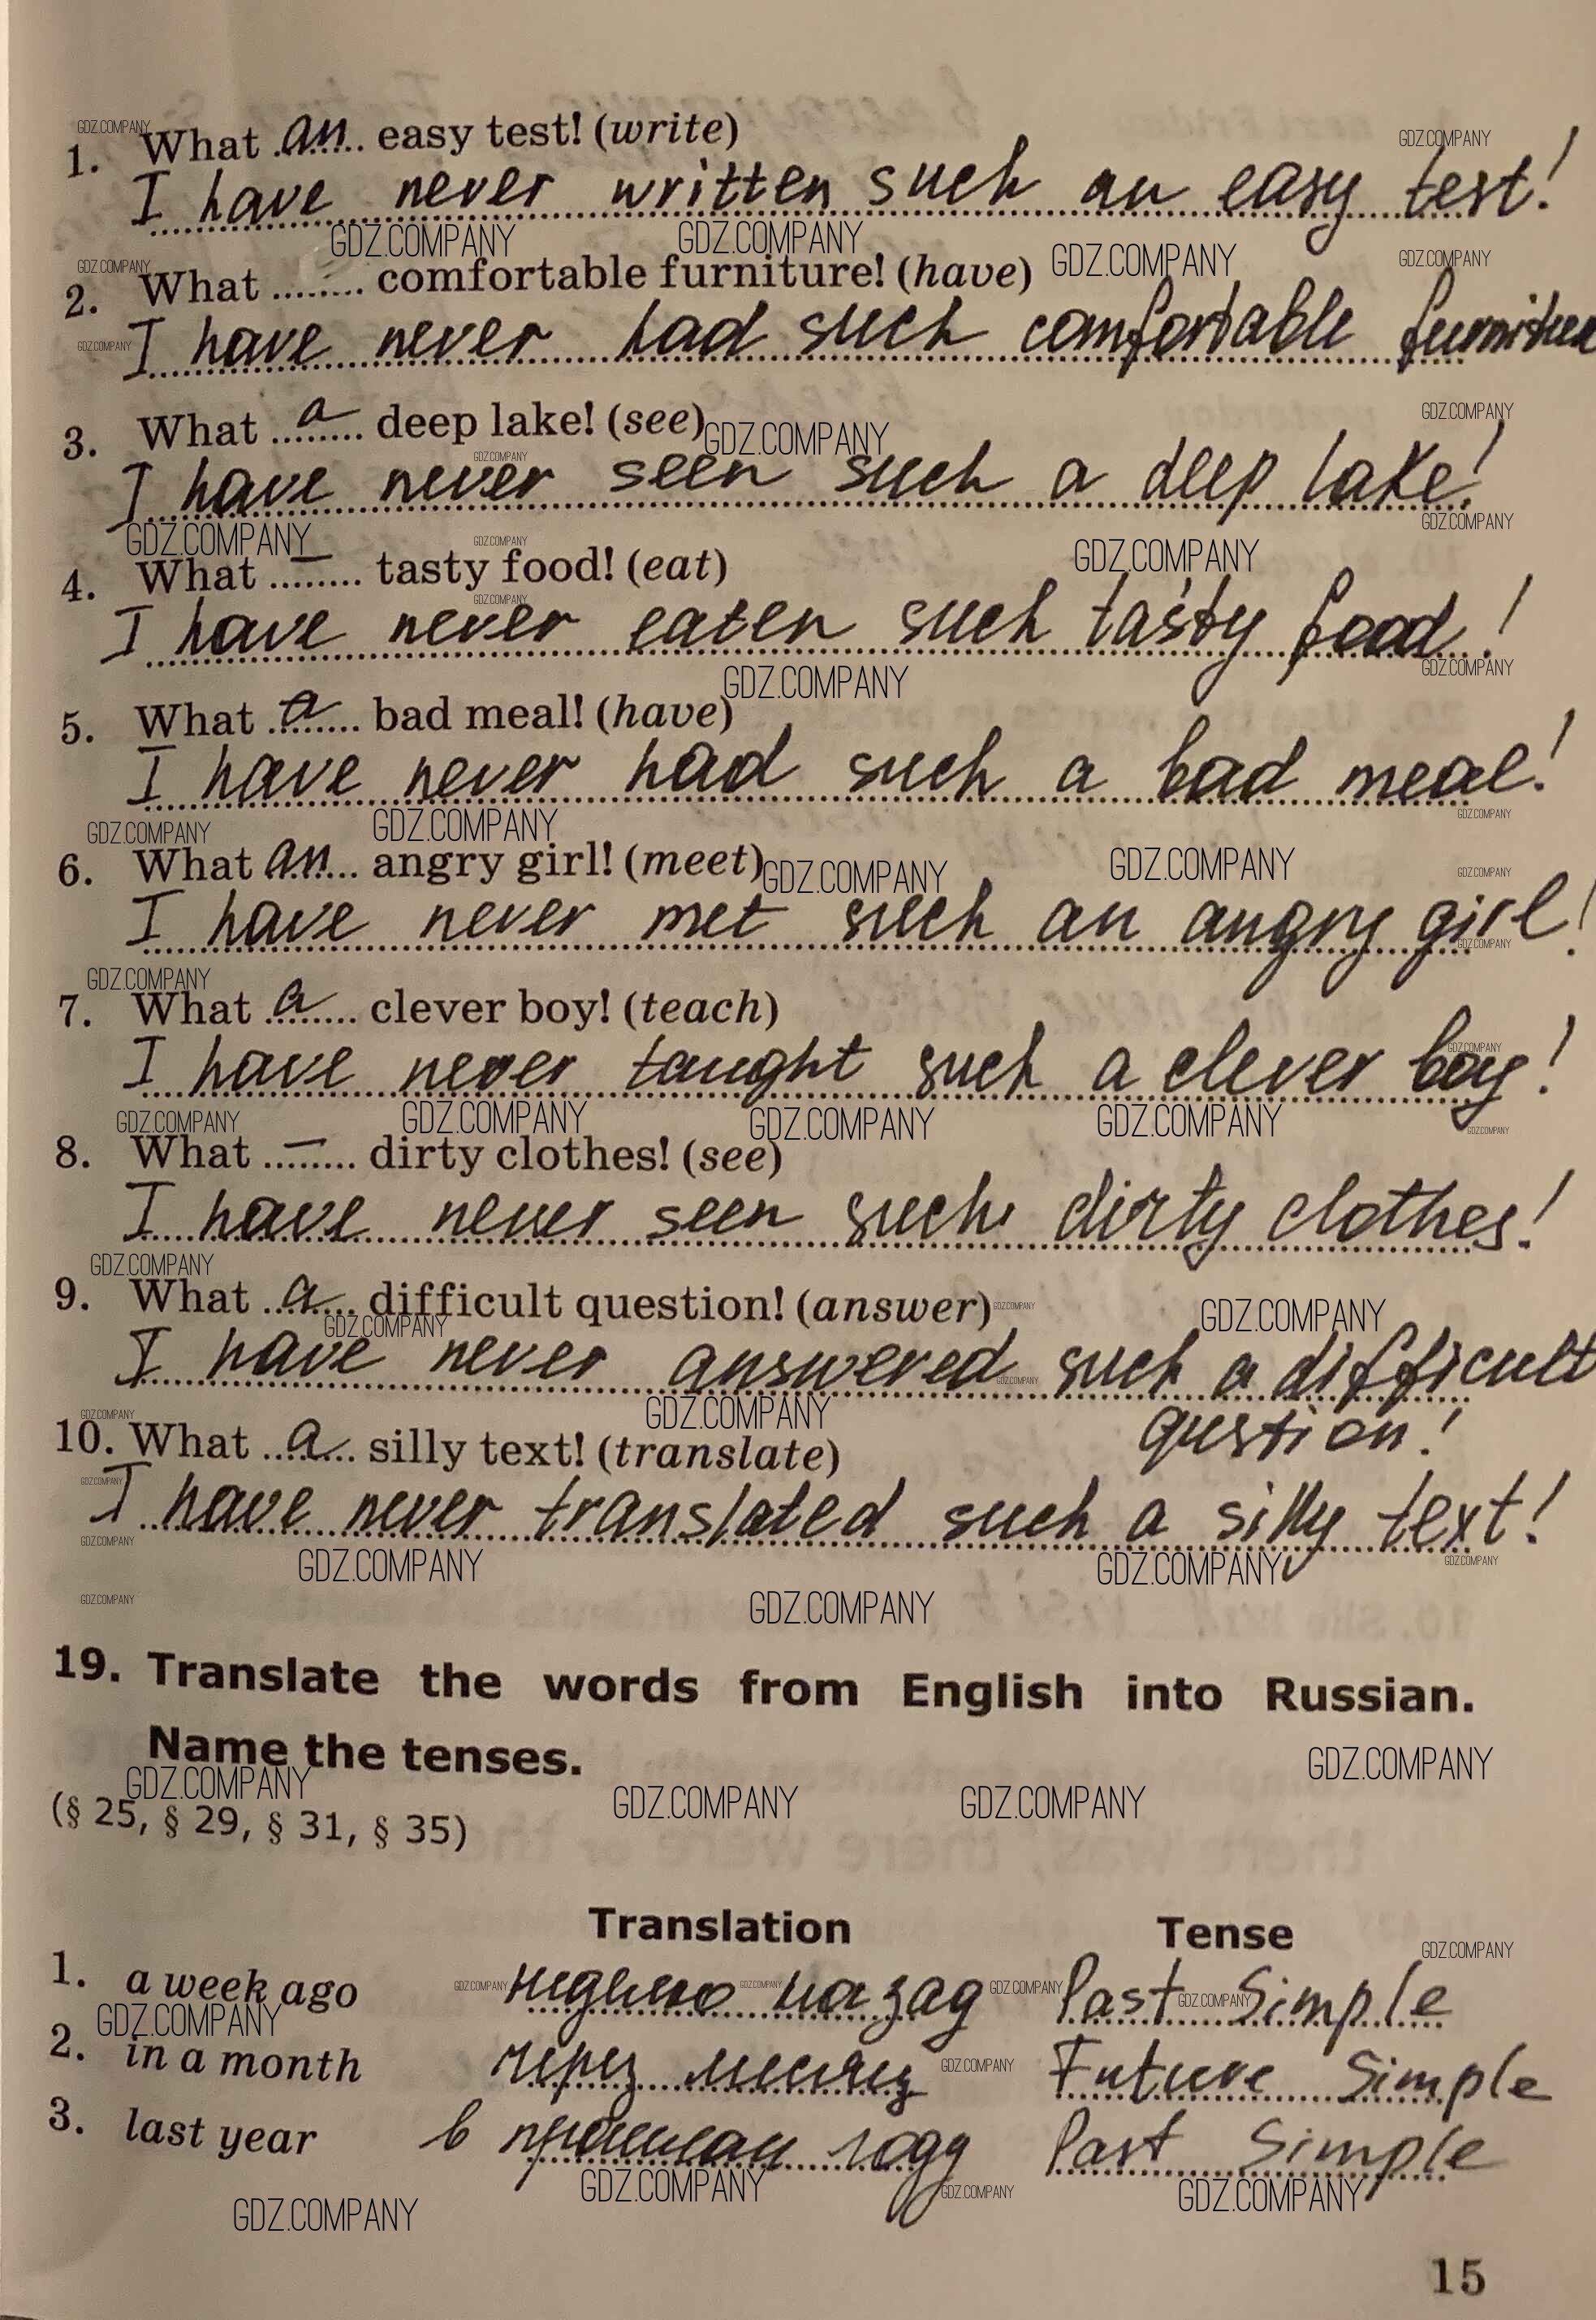 1. What an easy test! (write)
I have never written such an easy test!
2. What ........ comfortable furniture! (have)
I have never had such comfortable furniture
3. What a deep lake! (see)
I have never seen such a deep lake!
4. What — tasty food! (eat)
I have never eaten such tasty food!
5. What a bad meal! (have)
I have never had such a bad meal!
6. What an angry girl! (meet)
I have never met such an angry girl!
7. What a clever boy! (teach)
I have never taught such a clever boy!
8. What — dirty clothes! (see)
I have never seen such dirty clothes!
9. What a difficult question! (answer)
I have never answered such a difficult
question!
10. What a silly text! (translate)
I have never translated such a silly text!
19. Translate the words from English into Russian.
Name the tenses.
(§ 25, § 29, § 31, § 35)
Translation Tense
1. a week ago неделю назад Past Simple
2. in a month через месяц Future Simple
3. last year в прошлом году Past Simple
GDZ.COMPANY
15